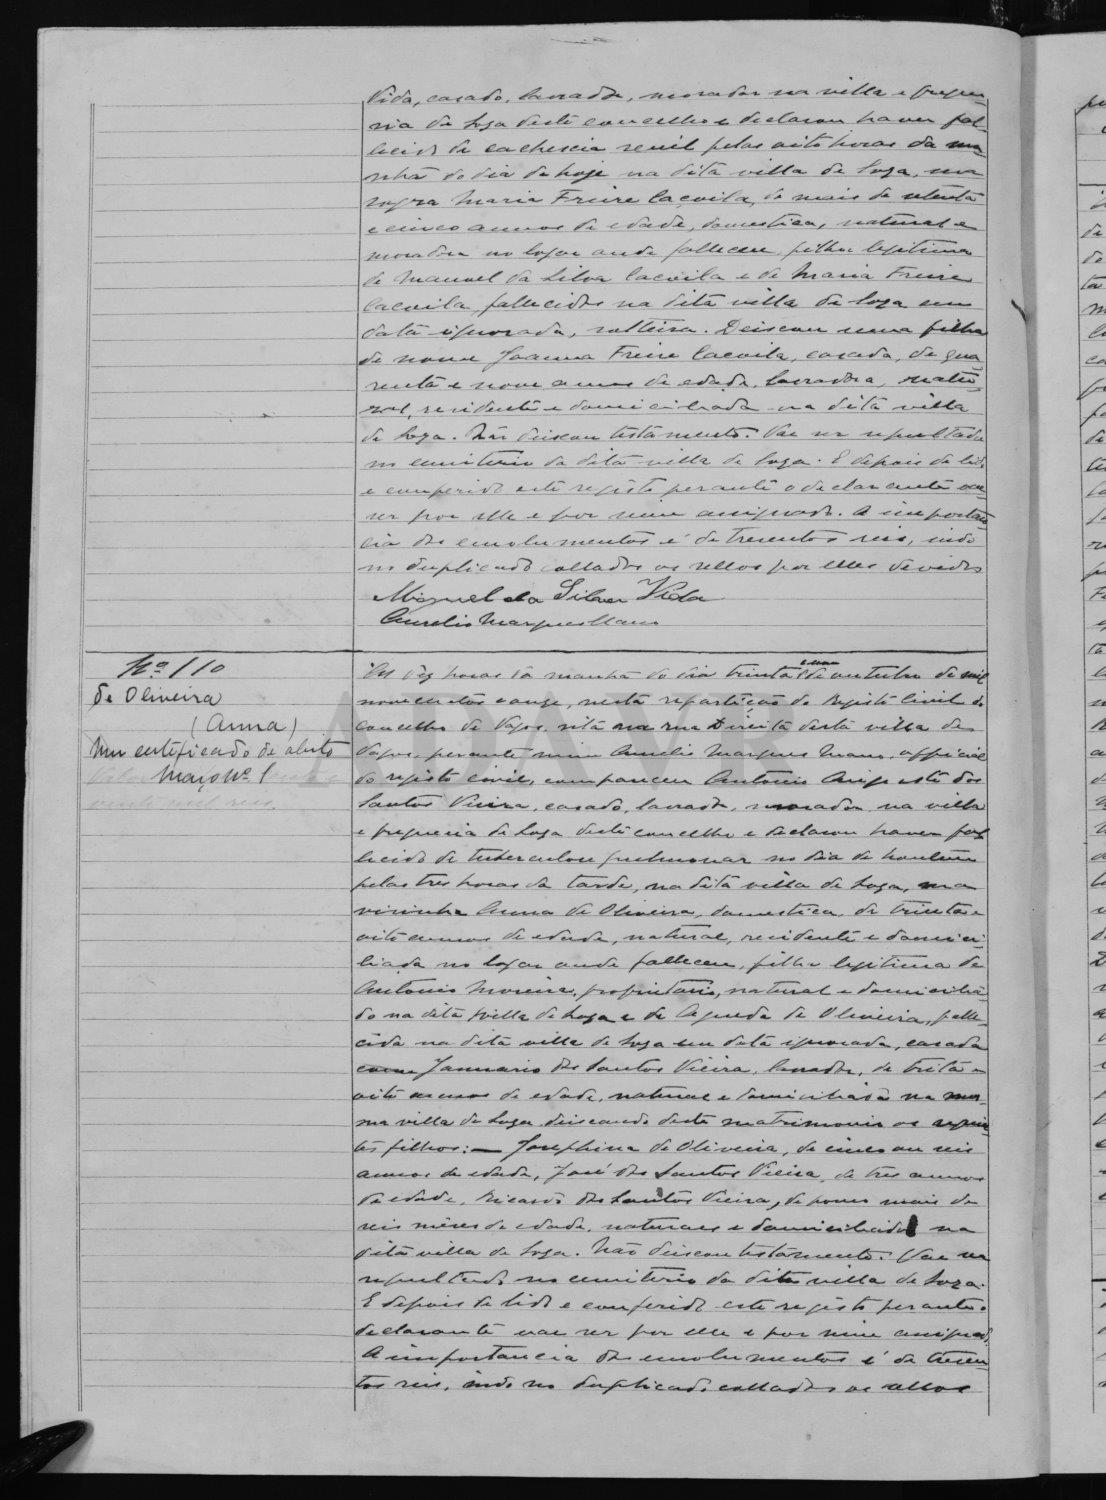 Vida, casado, lavrador, morador na villa e fregue-
sia de Soza deste concelho e declarou haver fal-
lecido de cachexia senil pelas oito horas da ma-
nhã do dia de hoje na dita villa de Soza, sua
sogra Maria Freire Caçoila, de mais de setenta
e cinco annos de edade, domestica, natural e
moradora no logar onde falleceu, filha legitima
de Manuel da Silva Cacoila e de Maria Freire
Cacoila, fallecidos na dita villa de Soza em
data ignorada, solteira. Deixou uma filha
de nome Joanna Freire Cacoila, casada, de qua
renta e nove annos de edade, lavradora, natu-
ral, residente e domiciliada na dita villa
de Soza. Não deixou testamento. Vae ser sepultada
no cemiterio da dita villa de Soza. E depois de lido
e conferido este registo perante o declarante vae
ser por elle e por mim assignado. A importan
cia dos emolumentos é de trezentos reis, indo
no duplicado collados os sellos por elles devidos
Miguel da Silva Vida
Aurelio Marques Mano
Nº 110
de Oliveira
(Anna)
Um certificado de obito
Março Nº 1
vinte mil reis
Ás dez horas da manhã do dia trinta e um de outubro de mil
novecentos e onze, nesta repartição do Registo Civil do
concelho de Vagos, sita na rua Direita desta villa de
Vagos, perante mim Aurelio Marques Mano, official
do registo civil, compareceu Antonio Augusto dos
Santos Vieira, casado, lavrador, morador na villa
e freguesia de Soza deste concelho e declarou haver fal
lecido de tuberculose pulmonar no dia de hontem
pelas tres horas da tarde, na dita villa de Soza, sua
visinha Anna de Oliveira, domestica, de trinta e
oito annos de edade, natural, residente e domici-
liada no logar onde falleceu, filha legitima de
Antonio Moreira, proprietario, natural e domicilia-
do na dita villa de Soza e de Agueda de Oliveira, falle-
cida na dita villa de Soza em data ignorada, casada
com Januario dos Santos Vieira, lavrador, de trita e
oito annos de edade, natural e domiciliado na mes-
ma villa de Soza, deixando deste matrimonio os seguin-
tes filhos: — Josephina de Oliveira, de cinco ou seis
annos de edade, José dos Santos Vieira, de tres annos
de edade, Ricardo dos Santos Vieira, de pouco mais de
seis mêses de edade, naturaes e domiciliados na
dita villa de Soza. Não deixou testamento. Vae ser
sepultada no cemiterio da dita villa de Soza.
E depois de lido e conferido este registo perante o
declarante vae ser por elle e por mim assignado.
A importancia dos emolumentos é de trezen-
tos reis, indo no duplicado collados os sellos